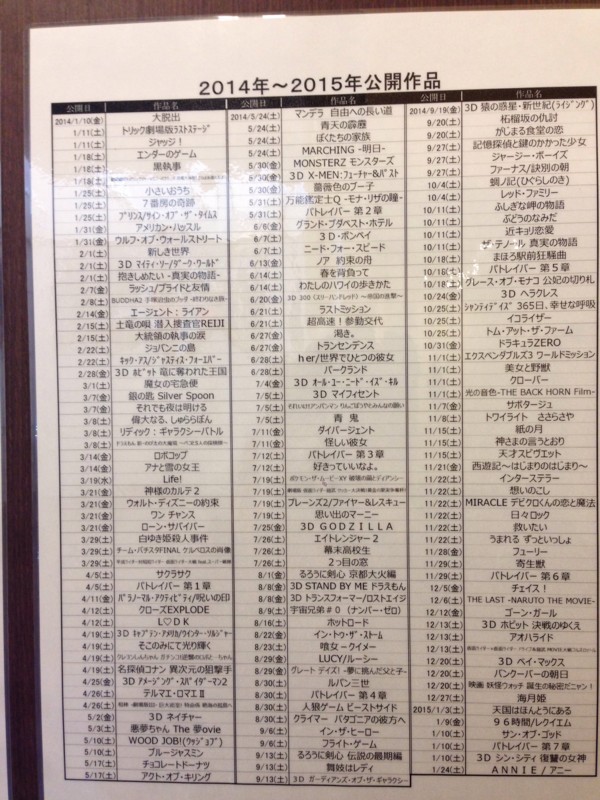 2014年～2015年公開作品
公開日 作品名
2014/1/10(金) 大脱出
1/11(土) トリック劇場版ラストステージ
1/11(土) ジャッジ!
1/18(土) エンダーのゲーム
1/18(土) 黒執事
1/18(土)
1/25(土) 小さいおうち
1/25(土) 7番房の奇跡
1/25(土) プリンス/サイン・オブ・ザ・タイムス
1/31(金) アメリカン・ハッスル
1/31(金) ウルフ・オブ・ウォールストリート
2/1(土) 新しき世界
2/1(土) 3D マイティ・ソー/ダーク・ワールド
2/1(土) 抱きしめたい -真実の物語-
2/7(金) ラッシュ/プライドと友情
2/8(土) BUDDHA2 手塚治虫のブッダ -終わりなき旅-
2/14(金) エージェント:ライアン
2/15(土) 土竜の唄 潜入捜査官REIJI
2/15(土) 大統領の執事の涙
2/22(土) ジョバンニの島
2/22(土) キック・アス/ジャスティス・フォーエバー
2/28(金) 3D ホビット 竜に奪われた王国
3/1(土) 魔女の宅急便
3/7(金) 銀の匙 Silver Spoon
3/7(金) それでも夜は明ける
3/8(土) 偉大なる、しゅららぼん
3/8(土) リディック:ギャラクシー・バトル
3/8(土)
3/14(金) ロボコップ
3/14(金) アナと雪の女王
3/19(水) Life!
3/21(金) 神様のカルテ2
3/21(金) ウォルト・ディズニーの約束
3/21(金) ワン チャンス
3/21(金) ローン・サバイバー
3/29(土) 白ゆき姫殺人事件
3/29(土) チーム・バチスタFINAL ケルベロスの肖像
3/29(土)
4/5(土) サクラサク
4/5(土) パトレイバー 第1章
4/11(金) パラノーマル・アクティビティ/呪いの印
4/12(土) クローズEXPLODE
4/12(土) L♡DK
4/19(土) 3D キャプテン・アメリカ/ウインター・ソルジャー
4/19(土) そこのみにて光り輝く
4/19(土)
4/19(土) 名探偵コナン 異次元の狙撃手
4/25(金) 3D アメージング・スパイダーマン2
4/26(土) テルマエ・ロマエⅡ
4/26(土)
5/2(金) 3D ネイチャー
5/3(土) 悪夢ちゃん The 夢ovie
5/10(土) WOOD JOB!(ウッジョブ)
5/10(土) ブルージャスミン
5/17(土) チョコレートドーナツ
5/17(土) アクト・オブ・キリング
公開日 作品名
2014/5/24(土) マンデラ 自由への長い道
5/24(土) 青天の霹靂
5/24(土) ぼくたちの家族
5/24(土) MARCHING -明日-
5/30(金) MONSTERZ モンスターズ
5/30(金) 3D X-MEN:フューチャー&パスト
5/30(金) 薔薇色のブー子
5/31(土) 万能鑑定士Q -モナ・リザの瞳-
5/31(土) パトレイバー 第2章
6/6(金) グランド・ブダペスト・ホテル
6/7(土) 3D・ポンペイ
6/7(土) ニード・フォー・スピード
6/13(金) ノア 約束の舟
6/14(土) 春を背負って
6/14(土) わたしのハワイの歩きかた
6/20(金) 3D 300〈スリーハンドレッド〉 ～帝国の進撃～
6/21(土) ラストミッション
6/21(土) 超高速!参勤交代
6/27(金) 渇き。
6/28(土) トランセンデンス
6/28(土) her/世界でひとつの彼女
6/28(土) パークランド
7/4(金) 3D オール・ユー・ニード・イズ・キル
7/5(土) 3D マイフィセント
7/5(土) それいけ!アンパンマン りんごぼうやとみんなの願い
7/5(土) 青鬼
7/11(金) ダイバージェント
7/11(金) 怪しい彼女
7/12(土) パトレイバー 第3章
7/12(土) 好きっていいなよ。
7/19(土) ポケモン・ザ・ムービーXY 破壊の繭とディアンシー
7/19(土)
7/19(土) プレーンズ2/ファイヤー&レスキュー
7/19(土) 思い出のマーニー
7/25(金) 3D GODZILLA
7/26(土) エイトレンジャー2
7/26(土) 幕末高校生
7/26(土) 2つ目の窓
8/1(金) るろうに剣心 京都大火編
8/8(金) 3D STAND BY ME ドラえもん
8/8(金) 3D トランスフォーマー/ロストエイジ
8/9(土) 宇宙兄弟#0 (ナンバー・ゼロ)
8/16(土) ホットロード
8/22(金) イン・トゥ・ザ・ストーム
8/23(土) 喰女-クイメー
8/29(金) LUCY/ルーシー
8/29(金) グレート デイズ! -夢に挑んだ父と子-
8/30(土) ルパン三世
8/30(土) パトレイバー 第4章
8/30(土) 人狼ゲーム ビーストサイド
8/30(土) クライマー パタゴニアの彼方へ
9/6(土) イン・ザ・ヒーロー
9/6(土) フライト・ゲーム
9/13(土) るろうに剣心 伝説の最期編
9/13(土) 舞妓はレディ
9/13(土) 3D ガーディアンズ・オブ・ザ・ギャラクシー
公開日 作品名
2014/9/19(金) 3D 猿の惑星・新世紀(ライジング)
9/20(土) 柘榴坂の仇討
9/20(土) がじまる食堂の恋
9/27(土) 記憶探偵と鍵のかかった少女
9/27(土) ジャージー・ボーイズ
9/27(土) ファーナス/訣別の朝
10/4(土) 蜩ノ記(ひぐらしのき)
10/4(土) レッド・ファミリー
10/4(土) ふしぎな岬の物語
ぶどうのなみだ
近キョリ恋愛
ザ・テノール 真実の物語
まほろ駅前狂騒曲
10/18(土) パトレイバー 第5章
10/18(土) グレース・オブ・モナコ 公妃の切り札
10/24(金) 3D ヘラクレス
10/25(土) シャンティデイズ 365日、幸せな呼吸
10/25(土) イコライザー
10/25(土) トム・アット・ザ・ファーム
10/31(金) ドラキュラZERO
11/1(土) エクスペンダブルズ3 ワールドミッション
11/1(土) 美女と野獣
11/1(土) クローバー
11/1(土) 光の音色-THE BACK HORN Film-
11/7(金) サボタージュ
11/8(土) トワイライト ささらさや
11/15(土) 紙の月
11/15(土) 神さまの言うとおり
11/15(土) 天才スピヴェット
11/21(金) 西遊記～はじまりのはじまり～
11/22(土) インターステラー
11/22(土) 想いのこし
11/22(土) MIRACLE デビクロくんの恋と魔法
11/22(土) 日々ロック
11/22(土) 救いたい
11/22(土) うまれる ずっといっしょ
11/28(金) フューリー
11/29(土) 寄生獣
11/29(土) パトレイバー 第6章
12/5(金) チェイス!
12/6(土) THE LAST -NARUTO THE MOVIE-
12/12(金) ゴーン・ガール
12/13(土) 3D ホビット 決戦のゆくえ
12/13(土) アオハライド
12/13(土)
12/20(土) 3D ベイ・マックス
12/20(土) バンクーバーの朝日
12/20(土) 映画 妖怪ウォッチ 誕生の秘密だニャン!
12/27(土) 海月姫
2015/1/3(土) 天国はほんとうにある
1/9(金) 96時間/レクイエム
1/10(土) サン・オブ・ゴッド
1/10(土) パトレイバー 第7章
1/10(土) 3D シン・シティ 復讐の女神
1/24(土) ANNIE/アニー